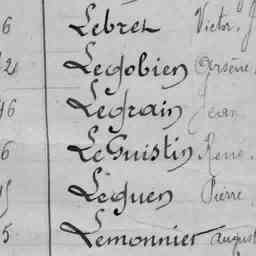 6 Lebret Victor, J
2 Le Gobien Arsène
46 Legrain Jean
6 Le Guistin René
Le Quen Pierre
5 Lemonnier August